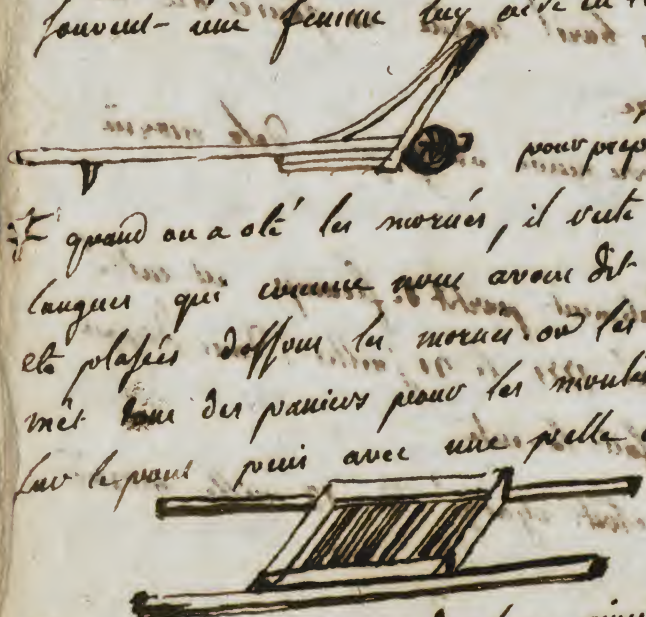 souvent une femme luy aide en
pour prep
quand on a oté les morués, il reste
langues qui comme nous avons dit
eté plasées dessous les morues on les
mèt dans des paniers pour les monter
sur le pont puis avec une pelle